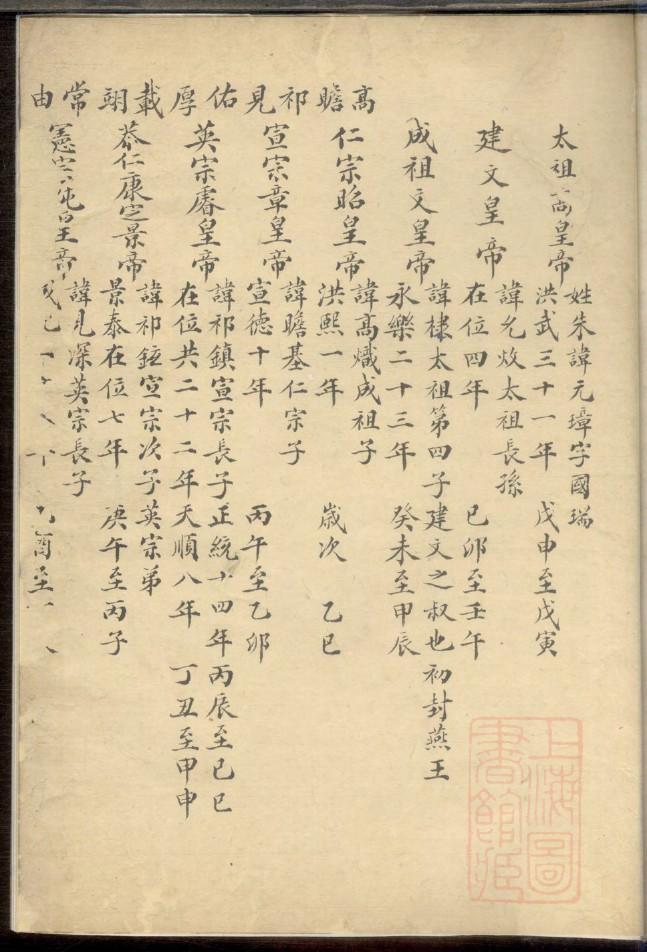 高瞻祁見佑厚載翊常由
太祖高皇帝
姓朱諱元璋字國瑞
洪武三十一年 戊申至戊寅
建文皇帝
諱允炆太祖長孫
在位四年 己卯至壬午
成祖文皇帝
諱棣太祖第四子建文之叔也初封燕王
永樂二十三年 癸未至甲辰
仁宗昭皇帝
諱高熾成祖子
洪熙一年 歲次乙巳
宣宗章皇帝
諱瞻基仁宗子
宣德十年 丙午至乙卯
英宗睿皇帝
諱祁鎮宣宗長子正統十四年丙辰至己巳
在位共二十二年天順八年 丁丑至甲申
恭仁康定景帝
諱祁鈺宣宗次子英宗弟
景泰在位七年 庚午至丙子
憲宗純皇帝
諱見深英宗長子
酉至
上海圖書館藏